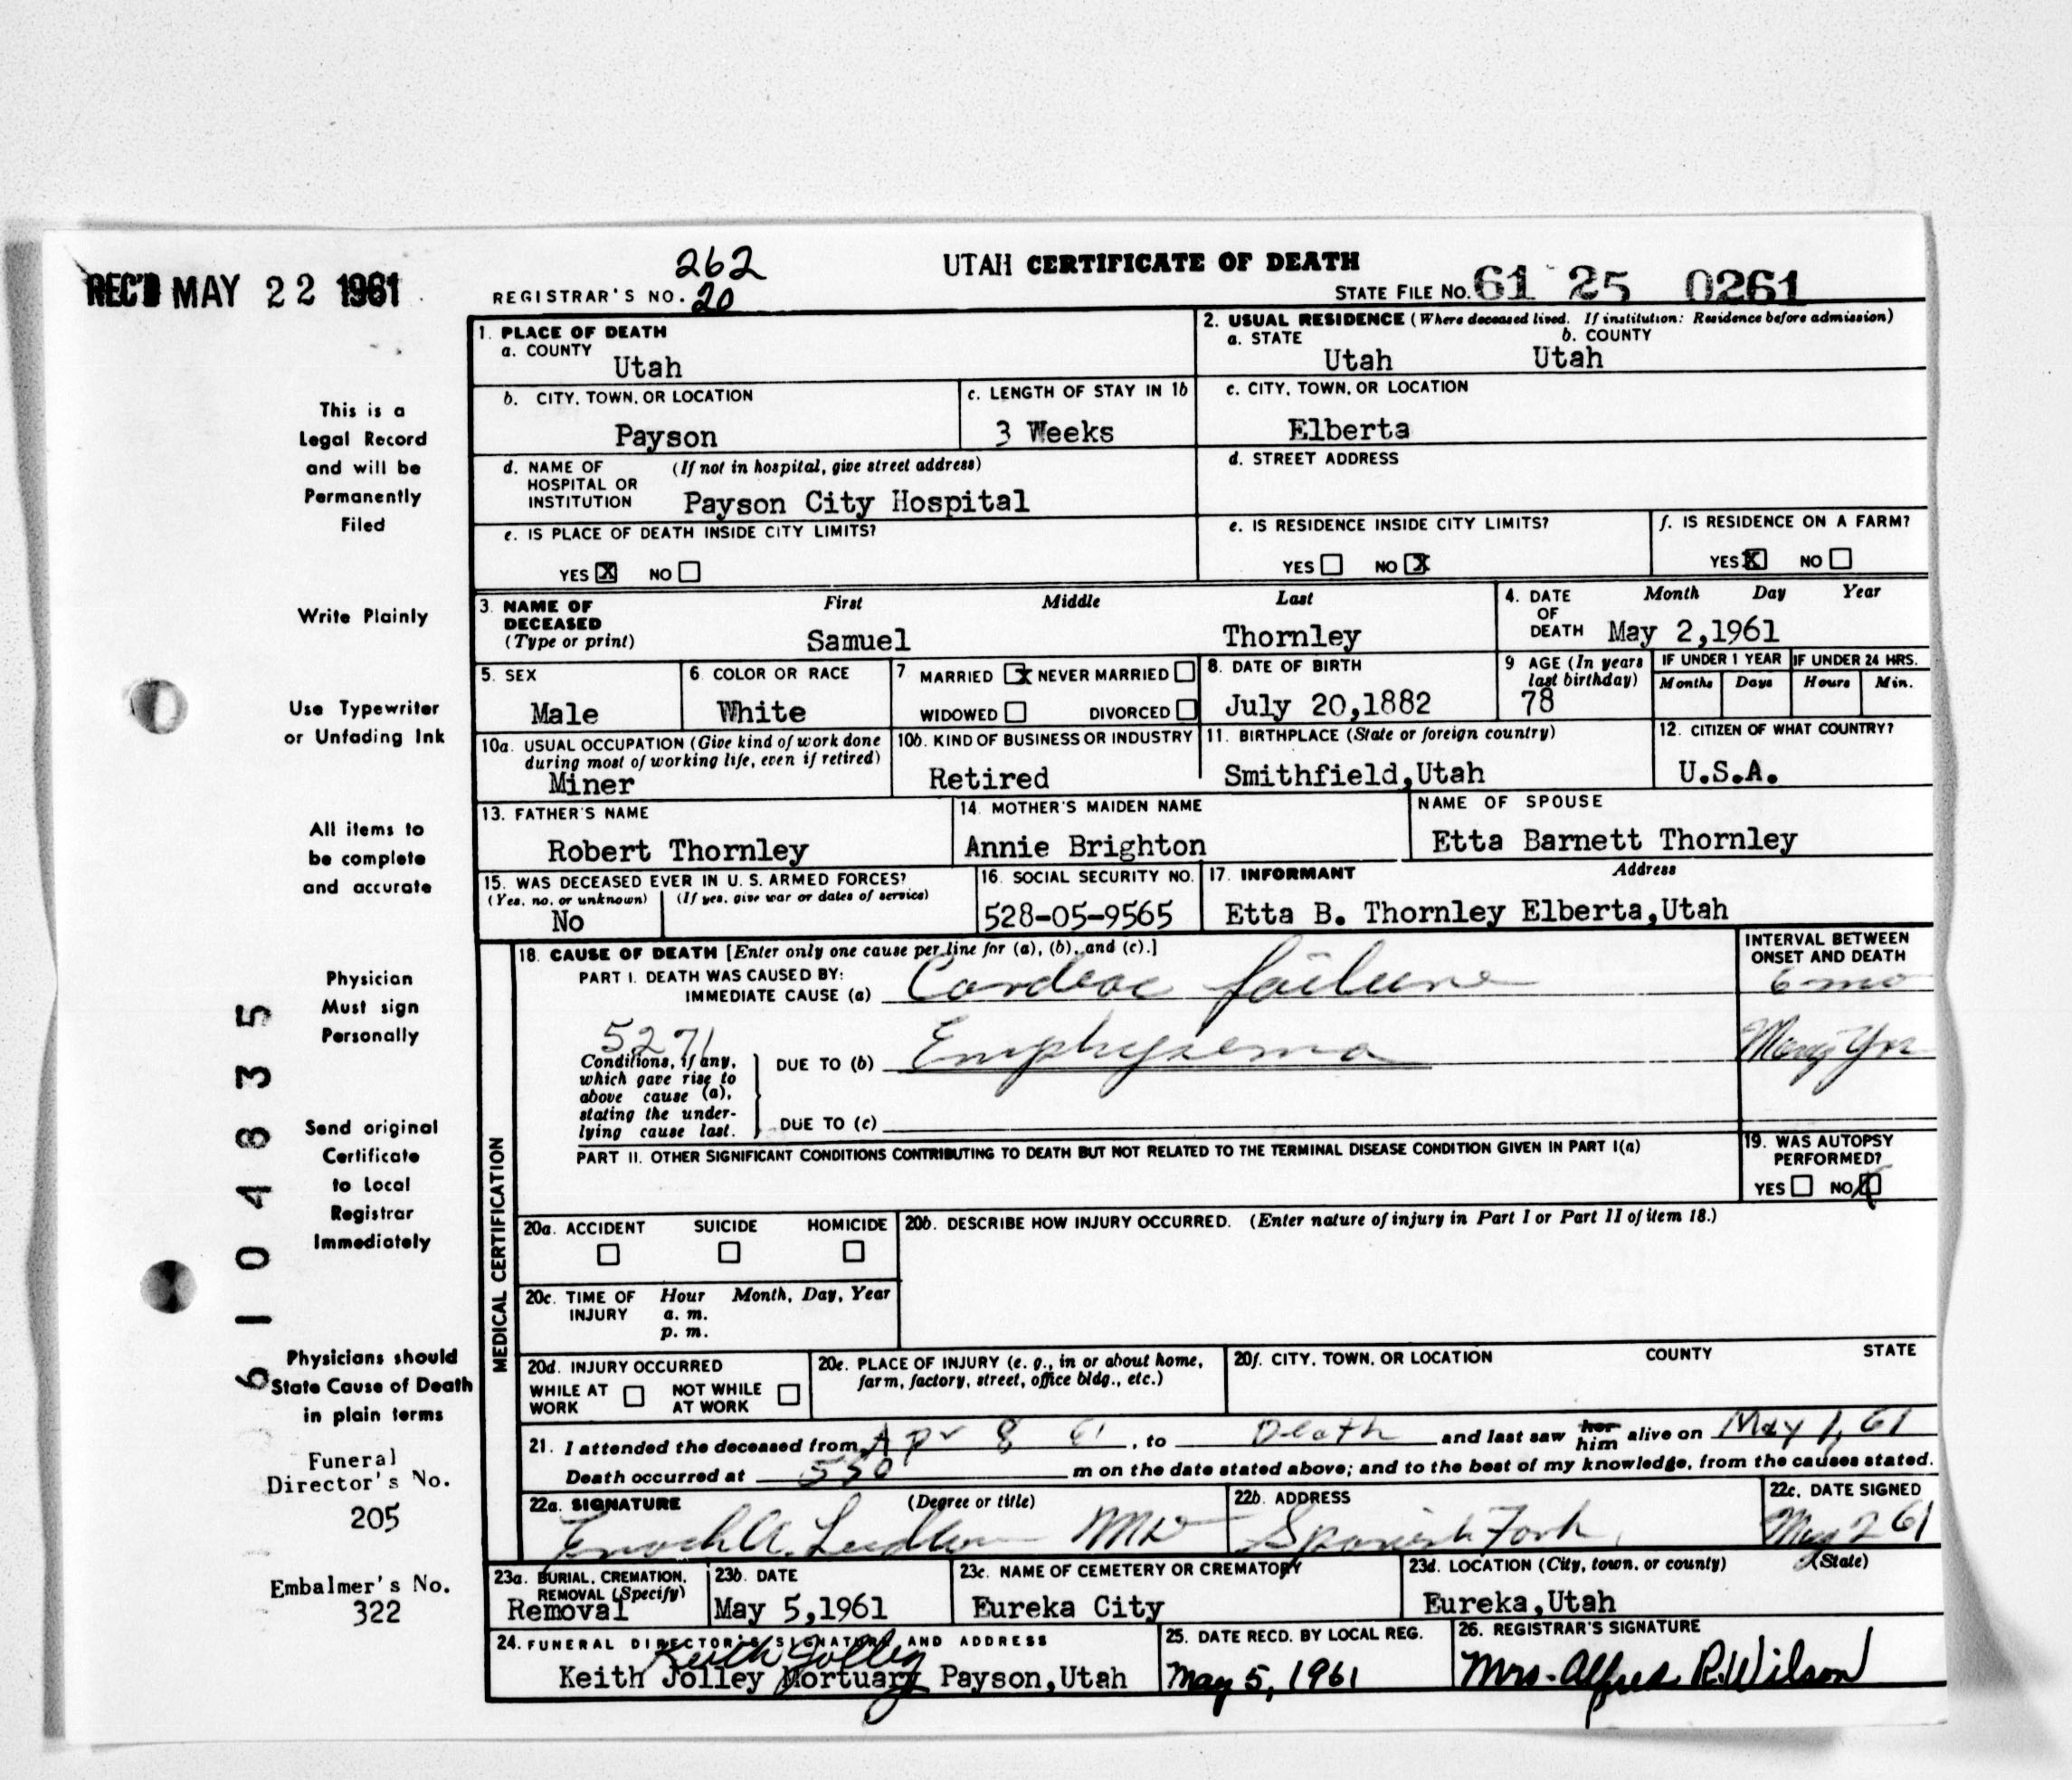 REC'D MAY 22 1961
262
REGISTRAR'S NO. 20
UTAH CERTIFICATE OF DEATH
STATE FILE NO. 61 25 0261
This is a
Legal Record
and will be
Permanently
Filed
Write Plainly
Use Typewriter
or Unfading Ink
All items to
be complete
and accurate
Physician
Must sign
Personally
Send original
Certificate
to Local
Registrar
Immediately
Physicians should
State Cause of Death
in plain terms
Funeral
Director's No.
205
Embalmer's No.
322
6104835
1. PLACE OF DEATH
a. COUNTY
Utah
2. USUAL RESIDENCE (Where deceased lived. If institution: Residence before admission)
a. STATE b. COUNTY
Utah Utah
b. CITY, TOWN, OR LOCATION
Payson
c. LENGTH OF STAY IN 1b
3 Weeks
c. CITY, TOWN, OR LOCATION
Elberta
d. NAME OF (If not in hospital, give street address)
HOSPITAL OR
INSTITUTION Payson City Hospital
d. STREET ADDRESS
e. IS PLACE OF DEATH INSIDE CITY LIMITS?
YES X NO
e. IS RESIDENCE INSIDE CITY LIMITS?
YES NO X
f. IS RESIDENCE ON A FARM?
YES X NO
3. NAME OF First Middle Last
DECEASED
(Type or print) Samuel Thornley
4. DATE Month Day Year
OF
DEATH May 2,1961
5. SEX
Male
6. COLOR OR RACE
White
7. MARRIED X NEVER MARRIED
WIDOWED DIVORCED
8. DATE OF BIRTH
July 20,1882
9. AGE (In years
last birthday)
78
IF UNDER 1 YEAR IF UNDER 24 HRS.
Months Days Hours Min.
10a. USUAL OCCUPATION (Give kind of work done
during most of working life, even if retired)
Miner
10b. KIND OF BUSINESS OR INDUSTRY
Retired
11. BIRTHPLACE (State or foreign country)
Smithfield,Utah
12. CITIZEN OF WHAT COUNTRY?
U.S.A.
13. FATHER'S NAME
Robert Thornley
14. MOTHER'S MAIDEN NAME
Annie Brighton
NAME OF SPOUSE
Etta Barnett Thornley
15. WAS DECEASED EVER IN U. S. ARMED FORCES?
(Yes, no, or unknown) (If yes, give war or dates of service)
No
16. SOCIAL SECURITY NO.
528-05-9565
17. INFORMANT Address
Etta B. Thornley Elberta,Utah
MEDICAL CERTIFICATION
18. CAUSE OF DEATH [Enter only one cause per line for (a), (b), and (c).]
PART I. DEATH WAS CAUSED BY:
IMMEDIATE CAUSE (a) Cardiac failure
INTERVAL BETWEEN
ONSET AND DEATH
6 mo
5271
Conditions, if any,
which gave rise to
above cause (a),
stating the under-
lying cause last.
DUE TO (b) Emphysema
Many Yrs
DUE TO (c)
PART II. OTHER SIGNIFICANT CONDITIONS CONTRIBUTING TO DEATH BUT NOT RELATED TO THE TERMINAL DISEASE CONDITION GIVEN IN PART I(a)
19. WAS AUTOPSY
PERFORMED?
YES NO X
20a. ACCIDENT SUICIDE HOMICIDE
20b. DESCRIBE HOW INJURY OCCURRED. (Enter nature of injury in Part I or Part II of item 18.)
20c. TIME OF Hour Month, Day, Year
INJURY a. m.
p. m.
20d. INJURY OCCURRED
WHILE AT NOT WHILE
WORK AT WORK
20e. PLACE OF INJURY (e. g., in or about home,
farm, factory, street, office bldg., etc.)
20f. CITY, TOWN, OR LOCATION COUNTY STATE
21. I attended the deceased from Apr 8 61, to Death and last saw her him alive on May 1, 61
Death occurred at 550 m on the date stated above; and to the best of my knowledge, from the causes stated.
22a. SIGNATURE (Degree or title)
Enoch A. Ludlow MD
22b. ADDRESS
Spanish Fork
22c. DATE SIGNED
May 2 61
23a. BURIAL, CREMATION,
REMOVAL (Specify)
Removal
23b. DATE
May 5,1961
23c. NAME OF CEMETERY OR CREMATORY
Eureka City
23d. LOCATION (City, town, or county) (State)
Eureka,Utah
24. FUNERAL DIRECTOR'S SIGNATURE AND ADDRESS
Keith Jolley
Keith Jolley Mortuary Payson,Utah
25. DATE RECD. BY LOCAL REG.
May 5, 1961
26. REGISTRAR'S SIGNATURE
Mrs. Alfred R. Wilson